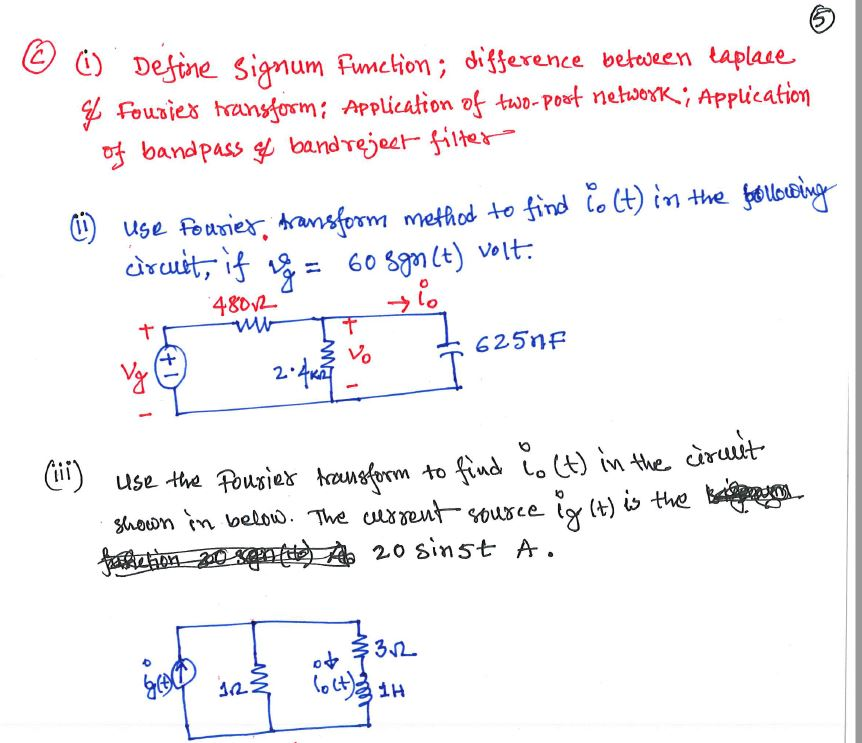 5
C (i) Define Signum Function; difference between laplace
& Fourier transform; Application of two-port network; Application
of bandpass & bandreject filter
(ii) Use Fourier transform method to find i₀(t) in the following
circuit, if vg = 60 sgn(t) volt.
480Ω
→ i₀
+
+
Vg
+
2.4kΩ
V₀
625nF
-
-
(iii) Use the Fourier transform to find i₀(t) in the circuit
shown in below. The current source ig(t) is the
20 sin5t A.
ig(t)
1Ω
i₀(t)
3Ω
1H